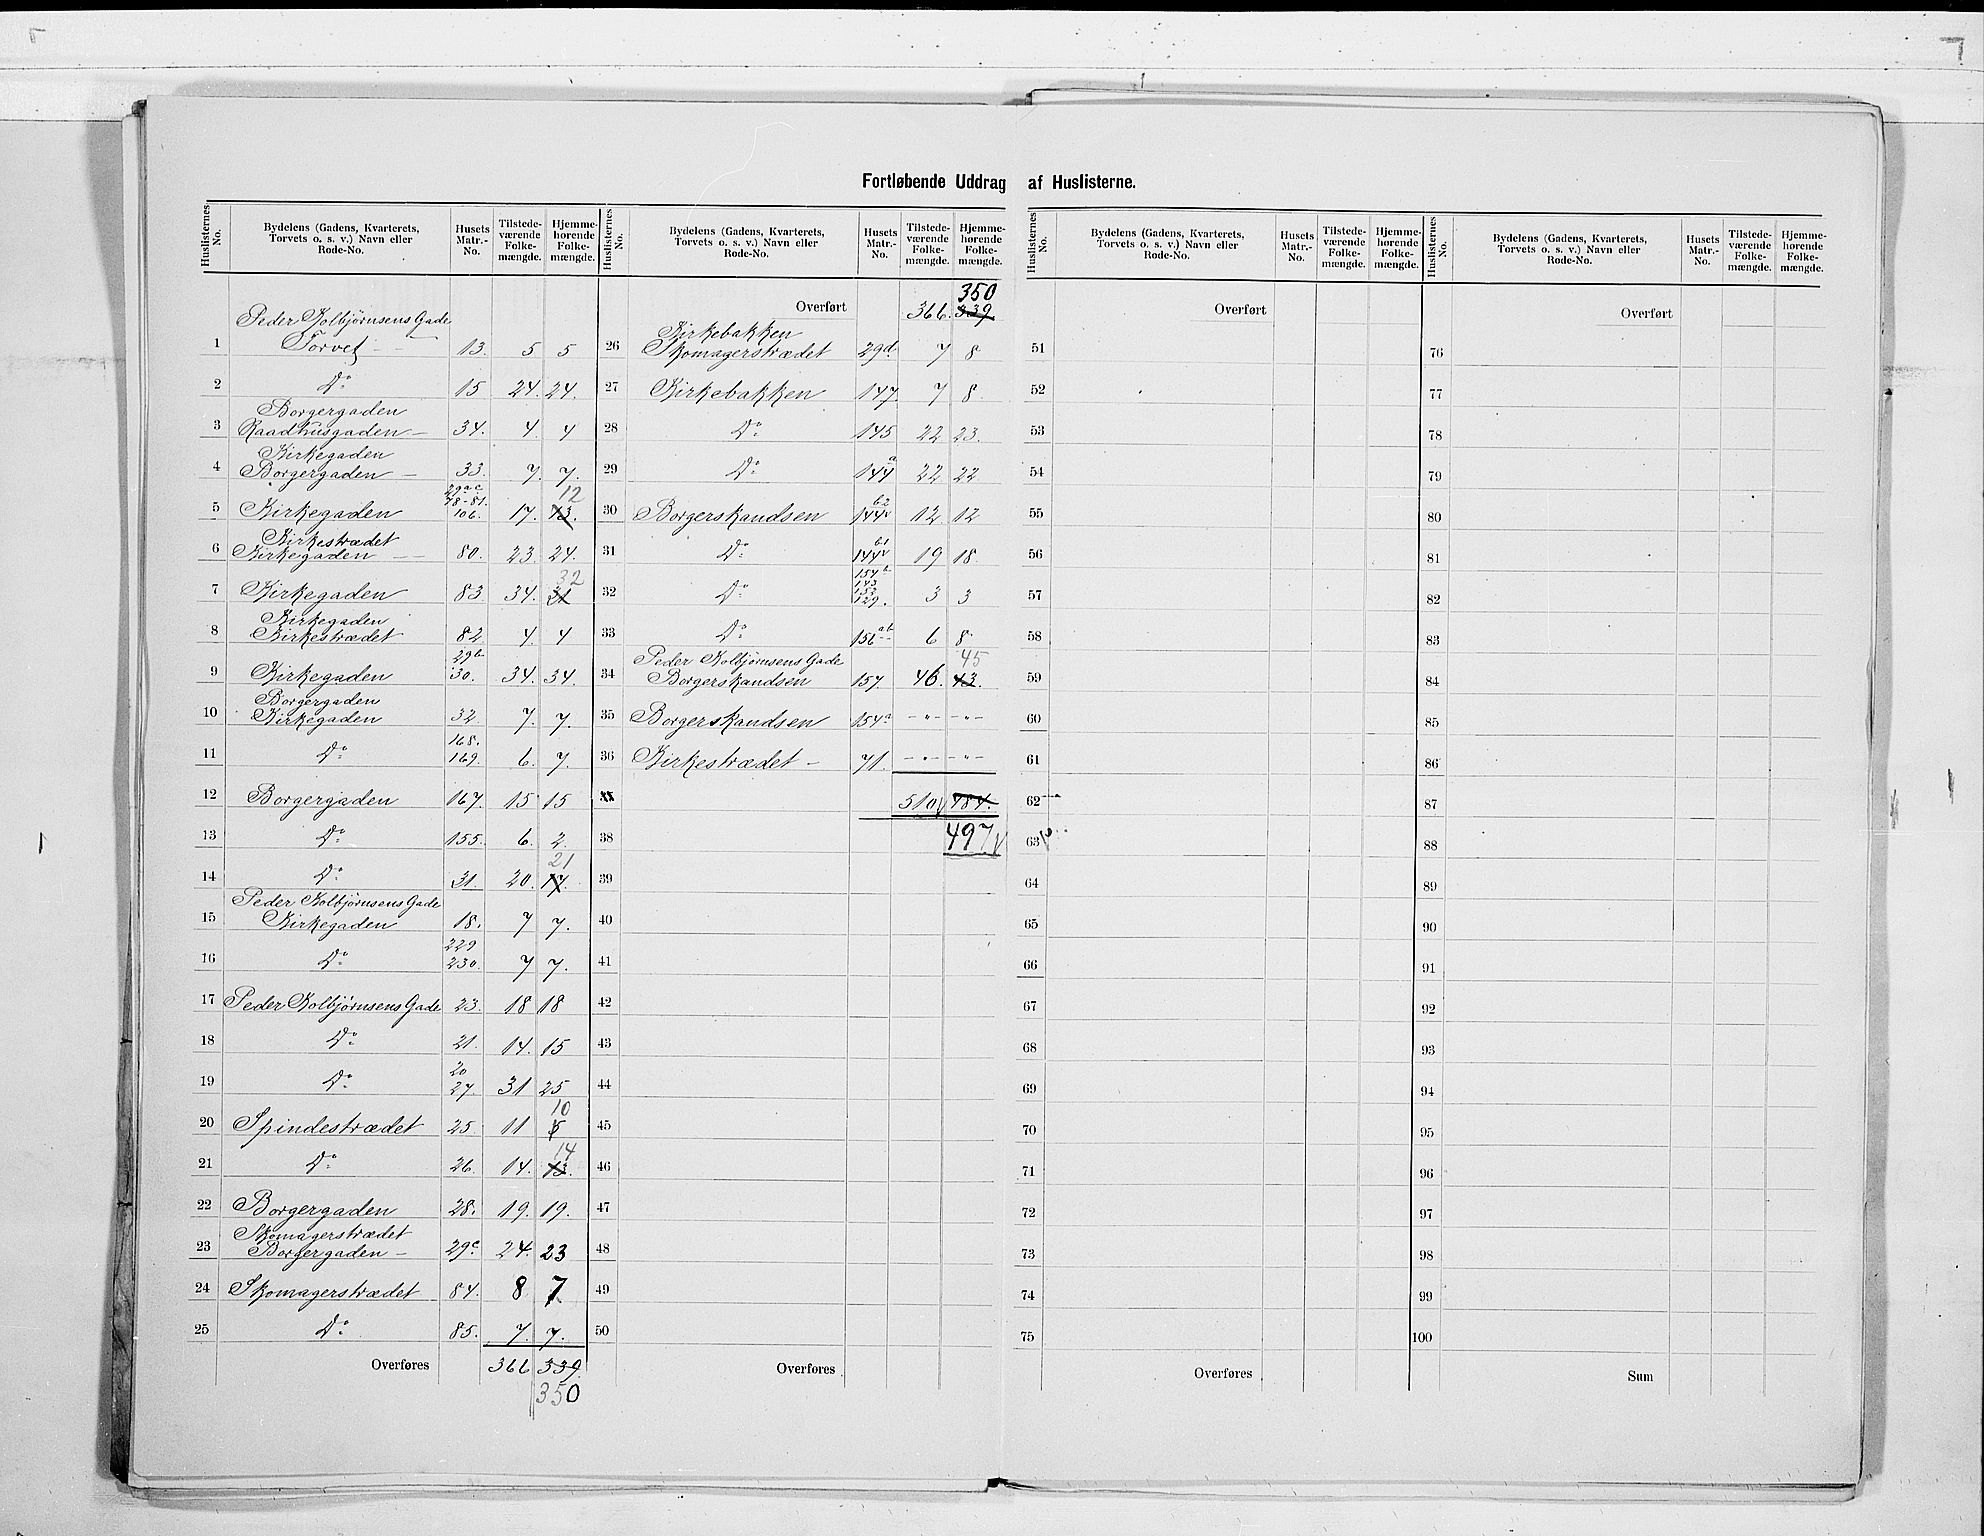 Fortløbende Uddrag af Huslisterne.
Huslisternes No. Bydelens (Gadens, Kvarterets, Torvets o. s. v.) Navn eller Rode-No. Husets Matr.-No. Tilstedeværende Folkemængde. Hjemmehørende Folkemængde.
Peder Kolbjørnsens Gade
1 Torvet 13. 5 5
2 Do 15 24. 24.
Borgergaden
3 Raadhusgaden 34. 4. 4
Kirkegaden
4 Borgergaden 33. 7. 7.
29ac 78-81. 12
5 Kirkegaden 106. 17. 13.
Kirkestrædet
6 Kirkegaden 80. 23 24.
32
7 Kirkegaden 83 34. 31
Kirkegaden
8 Kirkestrædet 82. 4. 4
29b
9 Kirkegaden 30. 34. 34.
Borgergaden
10 Kirkegaden 32. 7. 7.
168.
11 Do 169. 6. 7.
12 Borgergaden 167. 15 15
13 Do 155. 6. 2.
21
14 Do 31. 20. 17.
Peder Kolbjørnsens Gade
15 Kirkegaden 18. 7 7.
229
16 Do 230. 7 7.
17 Peder Kolbjørnsens Gade 23. 18 18
18 Do 21. 14. 15
20
19 Do 27. 31 25
10
20 Spindestrædet 25. 11
14
21 Do 26. 14. 13.
22 Borgergaden 28. 19. 19.
Skomagerstrædet
23 Borgergaden 29c 24. 23
24 Skomagerstrædet 84. 8 7
25 Do 85. 7. 7.
Overføres 366 339.
350
Huslisternes No. Bydelens (Gadens, Kvarterets, Torvets o. s. v.) Navn eller Rode-No. Husets Matr.-No. Tilstedeværende Folkemængde. Hjemmehørende Folkemængde.
350
Overført 366. 339
Kirkebakken
26 Skomagerstrædet 29d 7 8
27 Kirkebakken 147. 7 8.
28 Do 145 22 23.
29 Do 144a 22 22
b2
30 Borgerskandsen 144v 12 12
b1
31 Do 144v 19 18.
154b
143
153
32 Do 129. 3 3
33 Do 156ab 6 8
Peder Kolbjørnsens Gade 45
34 Borgerskandsen 157. 46. 43.
35 Borgerskandsen 154a - " - - " -
36 Kirkestrædet 71. - " - - " -
510 484.
38 497
39
40
41
42
43
44
45
46
47
48
49
50
Overføres
Huslisternes No. Bydelens (Gadens, Kvarterets, Torvets o. s. v.) Navn eller Rode-No. Husets Matr.-No. Tilstedeværende Folkemængde. Hjemmehørende Folkemængde.
Overført
51
52
53
54
55
56
57
58
59
60
61
62
63
64
65
66
67
68
69
70
71
72
73
74
75
Overføres
Huslisternes No. Bydelens (Gadens, Kvarterets, Torvets o. s. v.) Navn eller Rode-No. Husets Matr.-No. Tilstedeværende Folkemængde. Hjemmehørende Folkemængde.
Overført
76
77
78
79
80
81
82
83
84
85
86
87
88
89
90
91
92
93
94
95
96
97
98
99
100
Sum